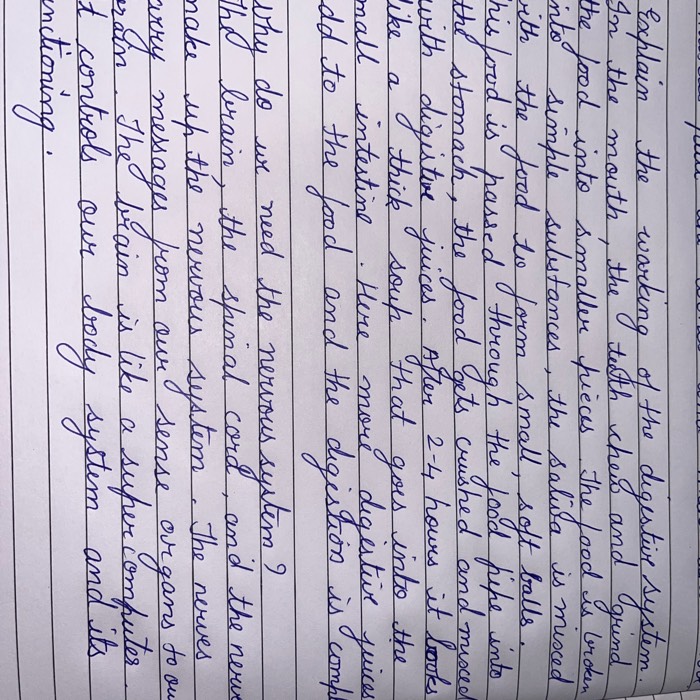 Explain the working of the digestive system.
In the mouth, the teeth chew and grind
the food into smaller pieces. The food is brok
into simple substances, the saliva is mixed
with the food to form small, soft balls.
his food is passed through the food pipe into
the stomach, the food gets crushed and mixed
with digestive juices. After 2-4 hours it looks
like a thick soup that goes into the
mall intestine. Here more digestive juices
dd to the food and the digestion is compl
Why do we need the nervous system?
The brain, the spinal cord, and the nerv
make up the nervous system. The nerves
arry messages from our sense organs to ou
brain. The brain is like a supercomputer.
t controls our body system and its
nctioning.